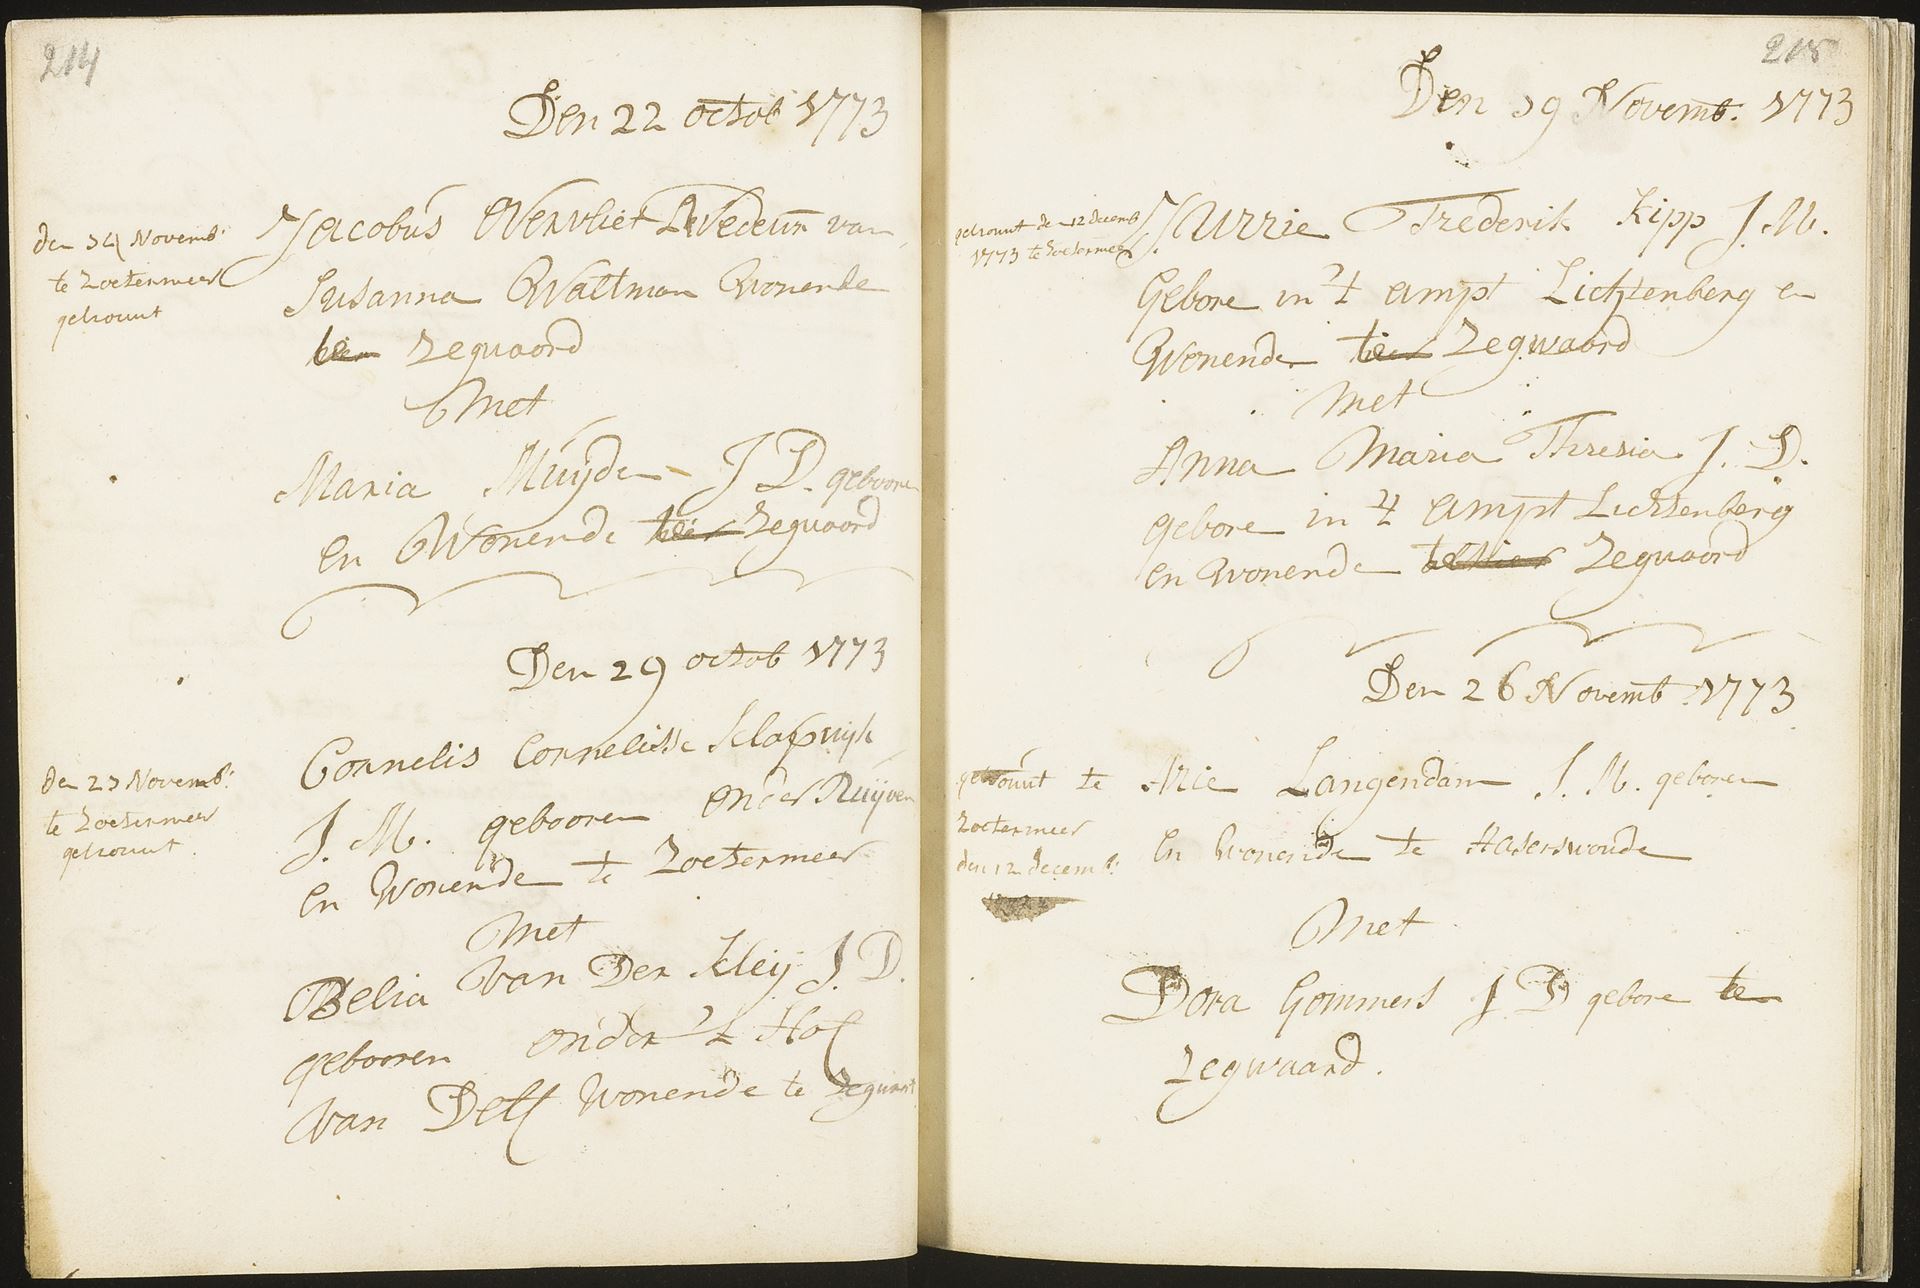 214
Den 22 octob 1773
den 14 Novemb:
te Zoetermeer
getrouwt
Jacobus Oververvliet Wedeur van
Susanna Waltman Wonende
Zegwaord
Met
Maria Muÿden J D. geboore
en Wonende Zegwaord
Den 29 octob 1773
den 21 Novemb:
te Zoetermeer
getrouwt
Cornelis Cornelisse Klapwijk
J. M. gebooren onder Ruijven
en Wonende te Zoetermeer
Met
Belia van Der Kleij J. D.
gebooren onder 't Hof
van Delf Wonende te Zegwaort
215
Den 19 Novemb. 1773
getrouwt den 12 decemb
1773 te Zoetermeer
Jurrie Frederik Kipp J. M.
Gebore in 't ampt Lichtenberg en
Wonende Zegwaord
Met
Anna Maria Thresia J. D.
gebore in 't ampt Lichtenberg
en wonende Zegwaord
Den 26 Novemb 1773
getrouwt te
Zoetermeer
den 12 decemb:
Arie Langendam J. M. geboren
en wonende te Haserswoude
Met
Dora Gommers J D gebore te
Zegwaard.